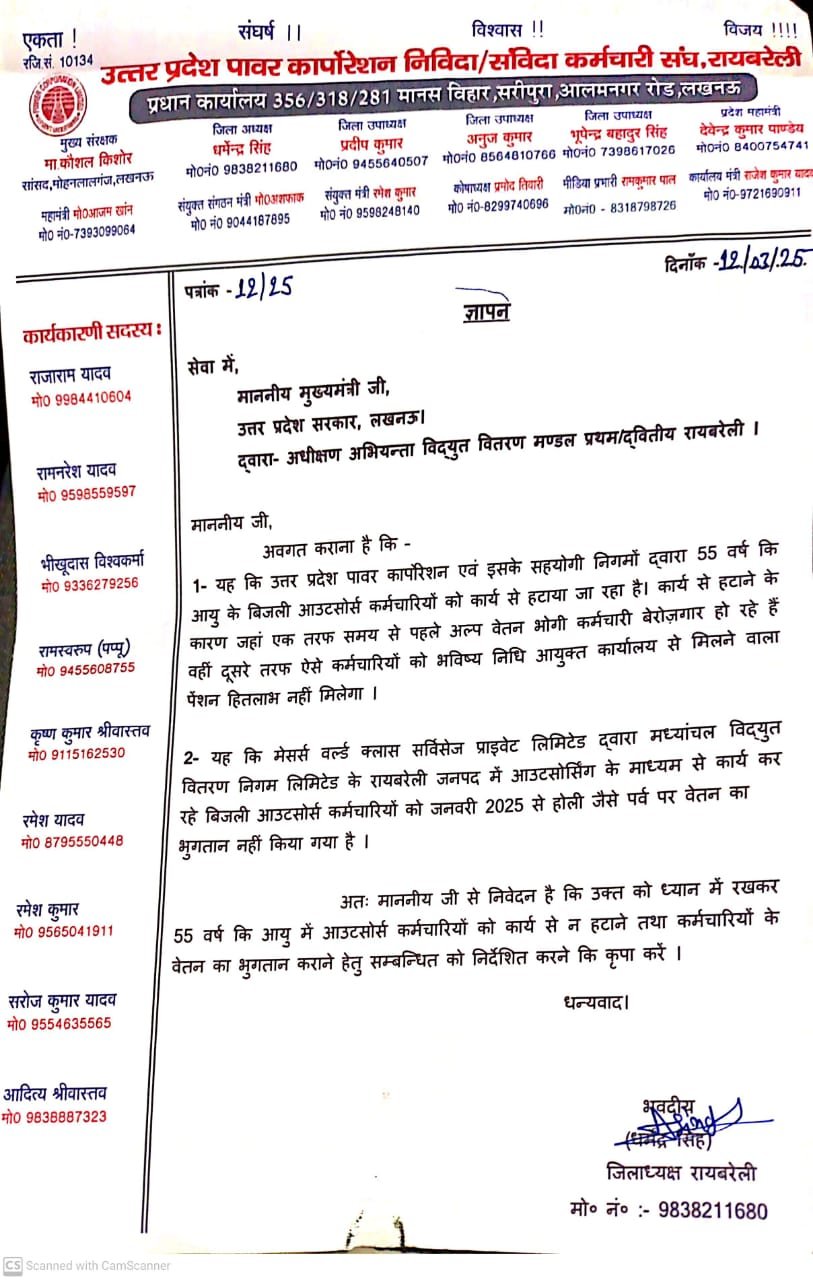 एकता !
संघर्ष ।।
विश्वास !!
विजय !!!!
रजि.सं. 10134
उत्तर प्रदेश पावर कार्पोरेशन निविदा/संविदा कर्मचारी संघ,रायबरेली
प्रधान कार्यालय 356/318/281 मानस विहार,सरीपुरा,आलमनगर रोड,लखनऊ
मुख्य संरक्षक
मा.कौशल किशोर
सांसद,मोहनलालगंज,लखनऊ
जिला अध्यक्ष
धर्मेन्द्र सिंह
मो0नं0 9838211680
जिला उपाध्यक्ष
प्रदीप कुमार
मो0नं0 9455640507
जिला उपाध्यक्ष
अनुज कुमार
मो0नं0 8564810766
जिला उपाध्यक्ष
भूपेन्द्र बहादुर सिंह
मो0नं0 7398617026
प्रदेश महामंत्री
देवेन्द्र कुमार पाण्डेय
मो0नं0 8400754741
महामंत्री मो0आजम खांन
मो0 नं0-7393099064
संयुक्त संगठन मंत्री मो0अशफाक
मो0 नं0 9044187895
संयुक्त मंत्री रमेश कुमार
मो0 नं0 9598248140
कोषाध्यक्ष प्रमोद तिवारी
मो0नं0-8299740696
मीडिया प्रभारी रामकुमार पाल
मो0नं0 - 8318798726
कार्यालय मंत्री राजेश कुमार यादव
मो0 नं0-9721690911
पत्रांक - 12/25
दिनाँक -12/03/25.
ज्ञापन
कार्यकारणी सदस्य :
राजाराम यादव
मो0 9984410604
रामनरेश यादव
मो0 9598559597
भीखूदास विश्वकर्मा
मो0 9336279256
रामस्वरुप (पप्पू)
मो0 9455608755
कृष्ण कुमार श्रीवास्तव
मो0 9115162530
रमेश यादव
मो0 8795550448
रमेश कुमार
मो0 9565041911
सरोज कुमार यादव
मो0 9554635565
आदित्य श्रीवास्तव
मो0 9838887323
सेवा में,
माननीय मुख्यमंत्री जी,
उत्तर प्रदेश सरकार, लखनऊ।
द्वारा- अधीक्षण अभियन्ता विद्युत वितरण मण्डल प्रथम/द्वितीय रायबरेली ।
माननीय जी,
अवगत कराना है कि -
1- यह कि उत्तर प्रदेश पावर कार्पोरेशन एवं इसके सहयोगी निगमों द्वारा 55 वर्ष कि
आयु के बिजली आउटसोर्स कर्मचारियों को कार्य से हटाया जा रहा है। कार्य से हटाने के
कारण जहां एक तरफ समय से पहले अल्प वेतन भोगी कर्मचारी बेरोज़गार हो रहे हैं
वहीं दूसरे तरफ ऐसे कर्मचारियों को भविष्य निधि आयुक्त कार्यालय से मिलने वाला
पेंशन हितलाभ नहीं मिलेगा ।
2- यह कि मेसर्स वर्ल्ड क्लास सर्विसेज प्राइवेट लिमिटेड द्वारा मध्यांचल विद्युत
वितरण निगम लिमिटेड के रायबरेली जनपद में आउटसोर्सिंग के माध्यम से कार्य कर
रहे बिजली आउटसोर्स कर्मचारियों को जनवरी 2025 से होली जैसे पर्व पर वेतन का
भुगतान नहीं किया गया है ।
अतः माननीय जी से निवेदन है कि उक्त को ध्यान में रखकर
55 वर्ष कि आयु में आउटसोर्स कर्मचारियों को कार्य से न हटाने तथा कर्मचारियों के
वेतन का भुगतान कराने हेतु सम्बन्धित को निर्देशित करने कि कृपा करें ।
धन्यवाद।
भवदीय
(धर्मेंद्र सिंह)
जिलाध्यक्ष रायबरेली
मो० नं० :- 9838211680
CS Scanned with CamScanner